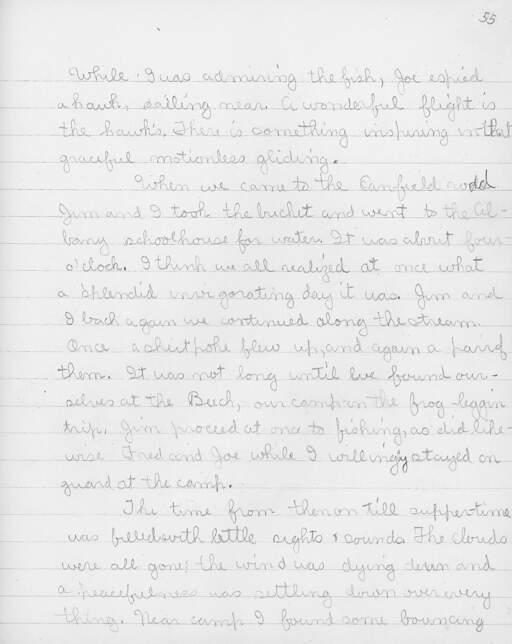 55
While I was admiring the fish, Joe espied
a hawk, sailing near. A wonderful flight is
the hawk's. There is something inspiring in that
graceful motionless gliding.
When we came to the Canfield road
Jim and I took the bucket and went to the Al-
bany schoolhouse for water. It was about four
o'clock. I think we all realized at once what
a splendid invigorating day it was. Jim and
I back again we continued along the stream.
Once a shitpoke flew up, and again a pair of
them. It was not long until we found our-
selves at the Beech, our camp on the frog-leggin
trip. Jim proceed at once to fishing, as did like-
wise Fred and Joe while I willingly stayed on
guard at the camp.
The time from then on till supper-time
was filled with little sights & sounds. The clouds
were all gone; the wind was dying down and
a peacefulness was settling down over every
thing. Near camp I found some bouncing